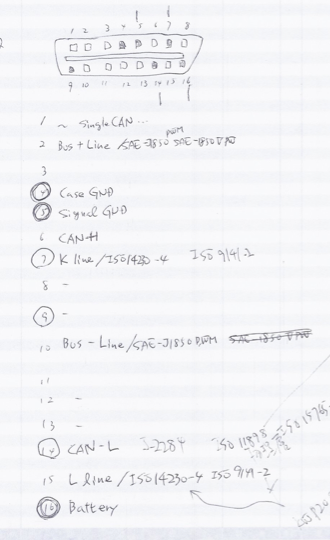 1 2 3 4 5 6 7 8
9 10 11 12 13 14 15 16
1 ~ SingleCAN...
PWM
2 Bus + Line / SAE-J1850 SAE-1850
3
4 Case GND
5 Signal GND
6 CAN-H
7 K line / ISO14230-4 ISO9141-2
8 -
9 -
10 Bus - Line / SAE-J1850 PWM
11
12 -
13 -
14 CAN-L J-2284 ISO 11898
15 L line / ISO14230-4 ISO9141-2
16 Battery